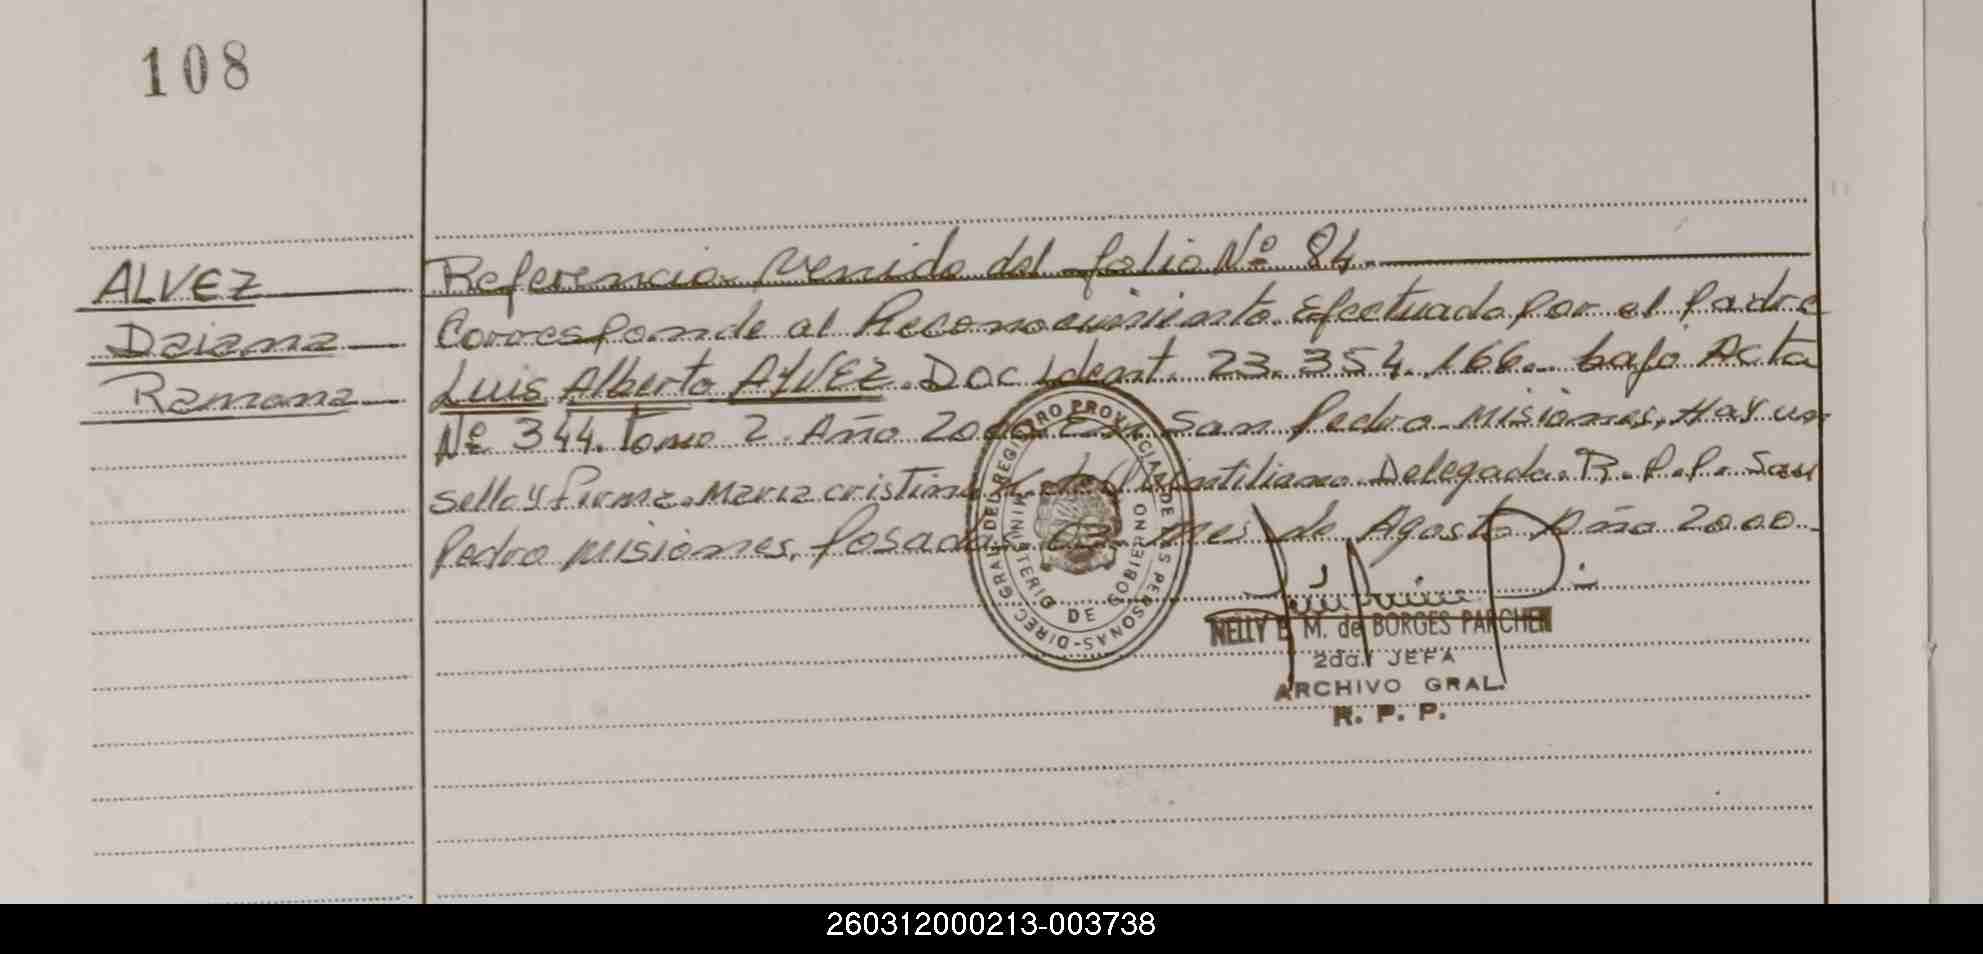 108
ALVEZ
Daiana
Ramona
Referencia venida del folio Nº 84.
Corresponde al Reconocimiento Efectuado por el Padre
Luis Alberto ALVEZ. Doc Ident. 23.354.166. bajo Acta
Nº 344. Tomo 2. Año 2000 En San Pedro Misiones, Hay un
sello y firma. Maria cristina de Quintiliano Delegada. R.P.P. San
Pedro Misiones, Posadas 03 mes de Agosto Año 2000.
DIREC. GRAL DEL REGISTRO PROVINCIAL DE LAS PERSONAS
MINISTERIO DE GOBIERNO
NELLY E M. de BORGES PARCHEN
2da. JEFA
ARCHIVO GRAL.
R. P. P.
260312000213-003738